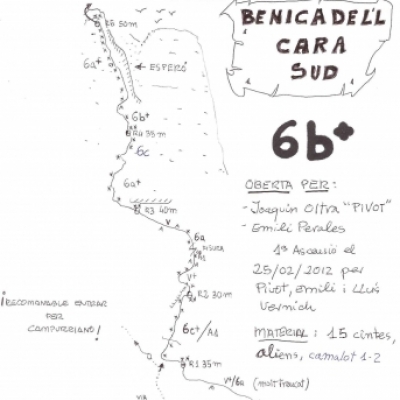 BENICADELL
CARA
SUD
R6 50m
6a+
ESPERÓ
6b+
R4 35m
6c
6a+
R3 40m
V
6a
V+
R2 30m
6c+/A1
R1 35m
V+/6a
VIA
¡RECOMANABLE ENTRAR
PER
CAMPURRIANO!
6b+
OBERTA PER:
- Joaquín Oltra "PIVOT"
- Emili Perales
1ª Ascensió el
25/02/2012 per
Pivot, emili i Lluís
Vernich
MATERIAL: 15 cintes,
aliens, camalot 1-2